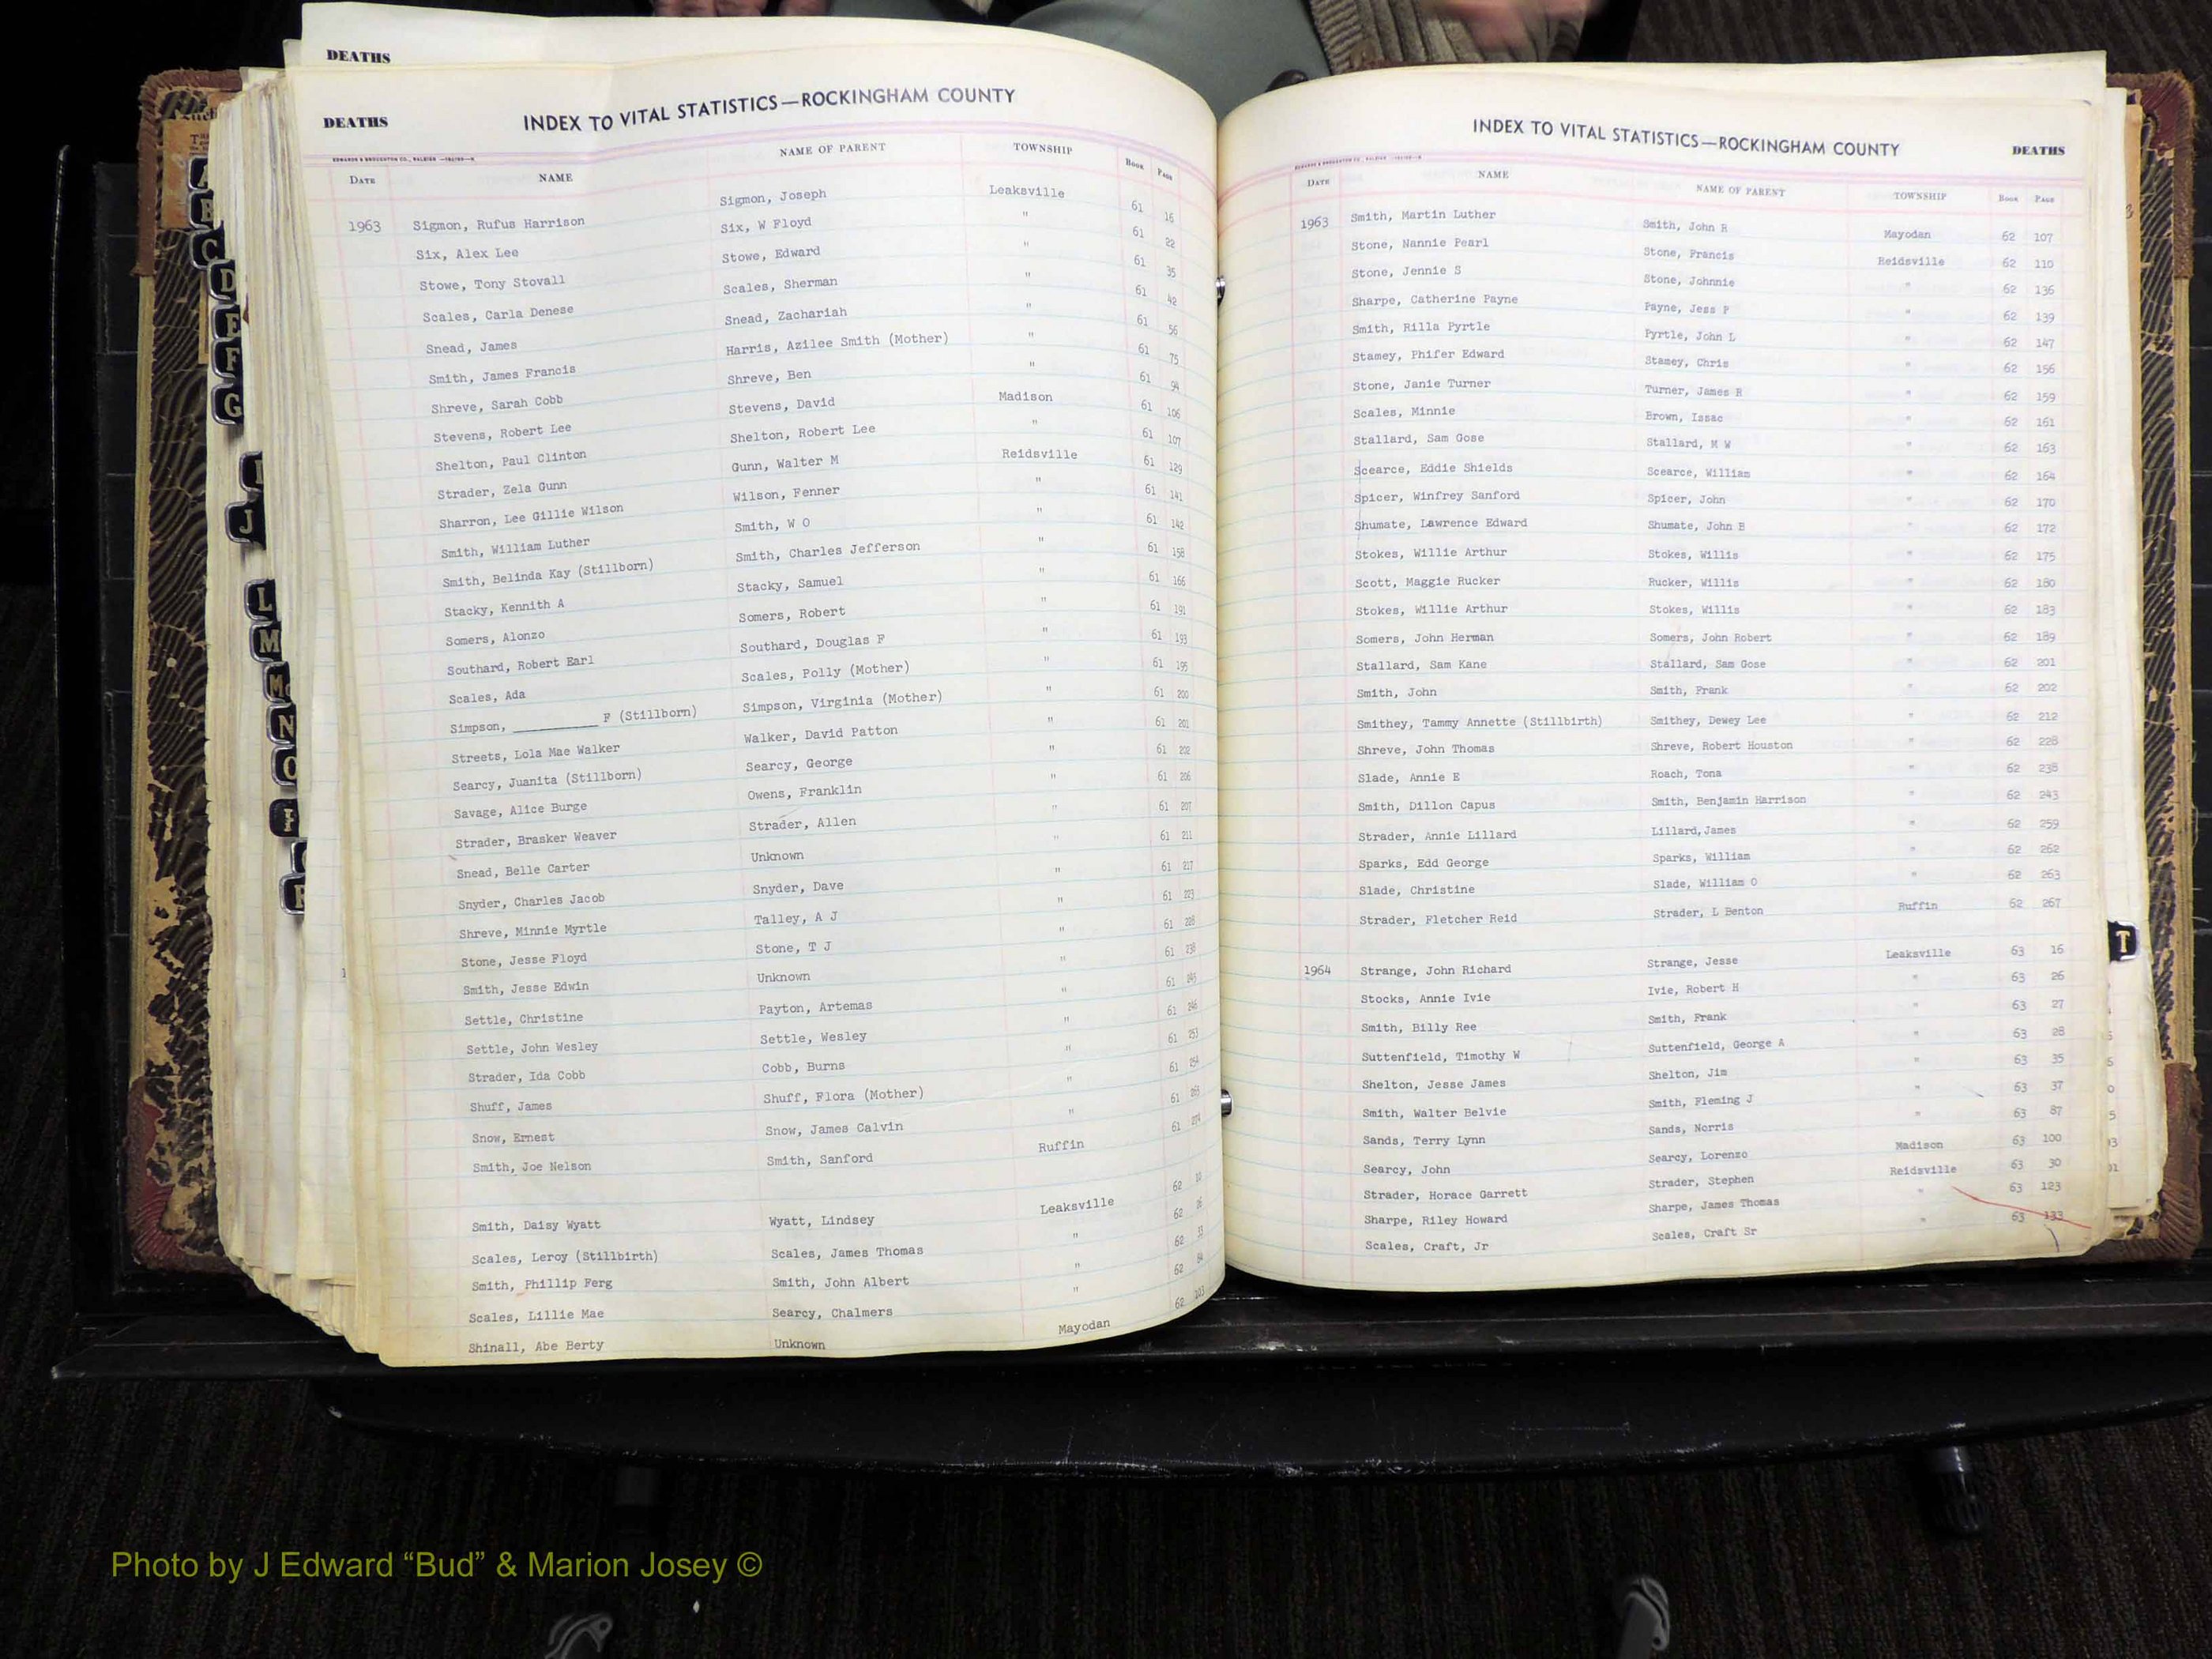 DEATHS
DEATHS
INDEX TO VITAL STATISTICS—ROCKINGHAM COUNTY
DATE NAME NAME OF PARENT TOWNSHIP BOOK PAGE
1963 Sigmon, Rufus Harrison Sigmon, Joseph Leaksville 61 16
Six, Alex Lee Six, W Floyd " 61 22
Stowe, Tony Stovall Stowe, Edward " 61 35
Scales, Carla Denese Scales, Sherman " 61 42
Snead, James Snead, Zachariah " 61 56
Smith, James Francis Harris, Azilee Smith (Mother) " 61 75
Shreve, Sarah Cobb Shreve, Ben " 61 94
Stevens, Robert Lee Stevens, David Madison 61 106
Shelton, Paul Clinton Shelton, Robert Lee " 61 107
Strader, Zela Gunn Gunn, Walter M Reidsville 61 129
Sharron, Lee Gillie Wilson Wilson, Fenner " 61 141
Smith, William Luther Smith, W O " 61 142
Smith, Belinda Kay (Stillborn) Smith, Charles Jefferson " 61 158
Stacky, Kennith A Stacky, Samuel " 61 166
Somers, Alonzo Somers, Robert " 61 191
Southard, Robert Earl Southard, Douglas F " 61 193
Scales, Ada Scales, Polly (Mother) " 61 195
Simpson, __________ F (Stillborn) Simpson, Virginia (Mother) " 61 200
Streets, Lola Mae Walker Walker, David Patton " 61 201
Searcy, Juanita (Stillborn) Searcy, George " 61 202
Savage, Alice Burge Owens, Franklin " 61 206
Strader, Brasker Weaver Strader, Allen " 61 207
Snead, Belle Carter Unknown " 61 211
Snyder, Charles Jacob Snyder, Dave " 61 217
Shreve, Minnie Myrtle Talley, A J " 61 223
Stone, Jesse Floyd Stone, T J " 61 228
Smith, Jesse Edwin Unknown " 61 238
Settle, Christine Payton, Artemas " 61 245
Settle, John Wesley Settle, Wesley " 61 246
Strader, Ida Cobb Cobb, Burns " 61 253
Shuff, James Shuff, Flora (Mother) " 61 254
Snow, Ernest Snow, James Calvin " 61 265
Smith, Joe Nelson Smith, Sanford Ruffin 61 274
Smith, Daisy Wyatt Wyatt, Lindsey Leaksville 62 10
Scales, Leroy (Stillbirth) Scales, James Thomas " 62 26
Smith, Phillip Ferg Smith, John Albert " 62 33
Scales, Lillie Mae Searcy, Chalmers " 62 84
Shinall, Abe Berty Unknown Mayodan 62 103
INDEX TO VITAL STATISTICS—ROCKINGHAM COUNTY
DEATHS
DATE NAME NAME OF PARENT TOWNSHIP BOOK PAGE
1963 Smith, Martin Luther Smith, John R Mayodan 62 107
Stone, Nannie Pearl Stone, Francis Reidsville 62 110
Stone, Jennie S Stone, Johnnie " 62 136
Sharpe, Catherine Payne Payne, Jess P " 62 139
Smith, Rilla Pyrtle Pyrtle, John L " 62 147
Stamey, Phifer Edward Stamey, Chris " 62 156
Stone, Janie Turner Turner, James R " 62 159
Scales, Minnie Brown, Issac " 62 161
Stallard, Sam Gose Stallard, M W " 62 163
Scearce, Eddie Shields Scearce, William " 62 164
Spicer, Winfrey Sanford Spicer, John " 62 170
Shumate, Lawrence Edward Shumate, John B " 62 172
Stokes, Willie Arthur Stokes, Willis " 62 175
Scott, Maggie Rucker Rucker, Willis " 62 180
Stokes, Willie Arthur Stokes, Willis " 62 183
Somers, John Herman Somers, John Robert " 62 189
Stallard, Sam Kane Stallard, Sam Gose " 62 201
Smith, John Smith, Frank " 62 202
Smithey, Tammy Annette (Stillbirth) Smithey, Dewey Lee " 62 212
Shreve, John Thomas Shreve, Robert Houston " 62 228
Slade, Annie E Roach, Tona " 62 238
Smith, Dillon Capus Smith, Benjamin Harrison " 62 243
Strader, Annie Lillard Lillard,James " 62 259
Sparks, Edd George Sparks, William " 62 262
Slade, Christine Slade, William O " 62 263
Strader, Fletcher Reid Strader, L Benton Ruffin 62 267
1964 Strange, John Richard Strange, Jesse Leaksville 63 16
Stocks, Annie Ivie Ivie, Robert H " 63 26
Smith, Billy Ree Smith, Frank " 63 27
Suttenfield, Timothy W Suttenfield, George A " 63 28
Shelton, Jesse James Shelton, Jim " 63 35
Smith, Walter Belvie Smith, Fleming J " 63 37
Sands, Terry Lynn Sands, Norris " 63 87
Searcy, John Searcy, Lorenzo Madison 63 100
Strader, Horace Garrett Strader, Stephen Reidsville 63 30
Sharpe, Riley Howard Sharpe, James Thomas " 63 123
Scales, Craft, Jr Scales, Craft Sr " 63 133
D
E
F
G
J
L
M
Mc
N
O
T
Photo by J Edward “Bud” & Marion Josey ©